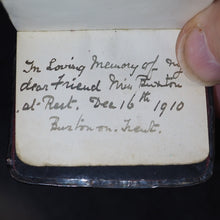 In Loving Memory of my
dear Friend Miss Buxton
at Rest. Dec 16th 1910
Burton on. Trent.